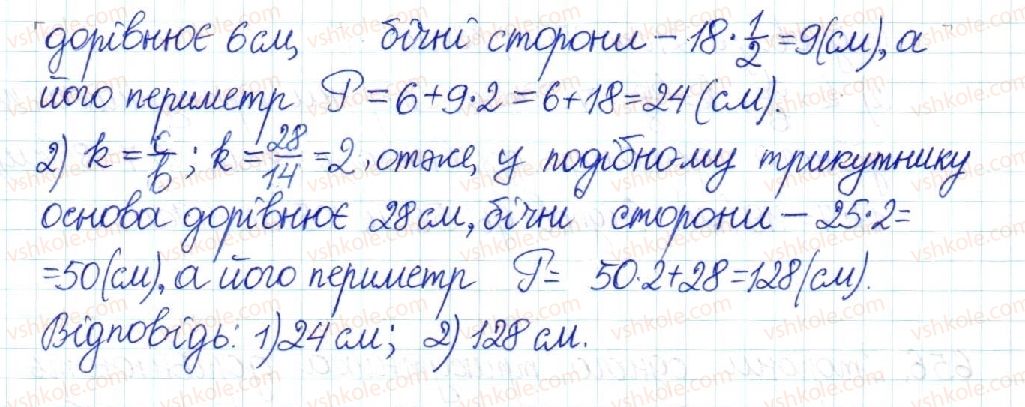 дорівнює 6 см, бічні сторони – 18·1/2 = 9(см), а
його периметр P = 6+9·2 = 6+18 = 24 (см).
2) k = c/b; k = 28/14 = 2, отже, у подібному трикутнику
основа дорівнює 28 см, бічні сторони – 25·2=
=50(см), а його периметр P= 50·2+28=128(см).
Відповідь: 1) 24 см; 2) 128 см.